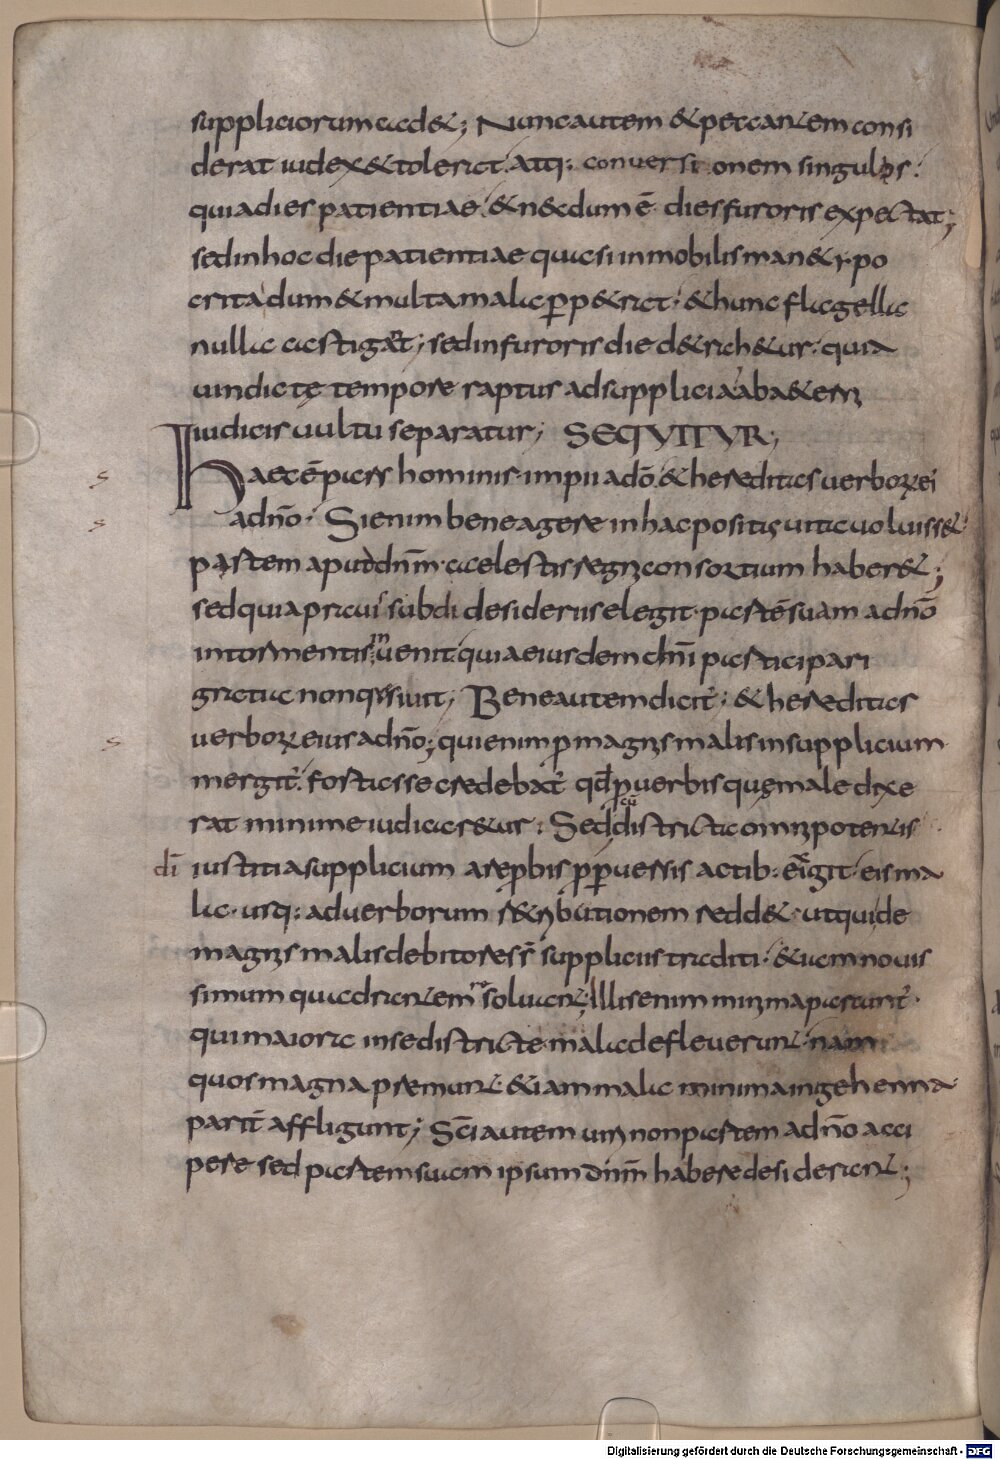 suppliciorum cadet; Nunc autem & peccantem consi
derat iudex & tolerat. atq: conversionem singulos.
quia dies patientiae. & necdum ē dies furoris expectat;
sed in hoc die patientiae quasi inmobilis manet ypo
crita dum & multa mala ꝑpetrat. & hunc flagella
nulla castigant; sed in furoris die detrahetur. quia
uindictę tempore raptus ad supplicia ab aeterni
iudicis uultu separatur; SEQVITVR;
Haec ē pars hominis impii a dō. & hereditas uerborꝝ ei'
a dn̄o. Si enim bene agere in hac positus uita uoluisset
partem apud dn̄m caelestis regni consortium haberet;
sed quia prauis subdi desideriis elegit. partē suam a dn̄o
in tormentis inuenit. quia eiusdem dn̄i participari
gratiae non quęsiuit; Bene autem dicit'. & hereditas
uerborꝝ eius a dn̄o; qui enim ꝓ magnis malis in supplicium
mergit'. fortasse credebat' qd ꝓ uerbis quę male dixe
rat minime iudicaretur. Sed cū districta omnipotentis
dī iustitia supplicium a reprobis ꝓ peruersis actib: exigit. eis ma
la. usq: ad uerborum retributionem reddet. ut qui de
magnis malis debitores s̄ suppliciis traditi. etiam nouis
simum quadrantem soluant; Illis enim minima parcunt'.
qui maiora in se districte mala defleuerunt. nam
quos magna premunt. etiam mala minima in gehenna
parit' affligunt; Sc̄i autem uiri non partem a dn̄o acci
pere sed partem suam ipsum dn̄m habere desiderant;
Digitalisierung gefördert durch die Deutsche Forschungsgemeinschaft - DFG